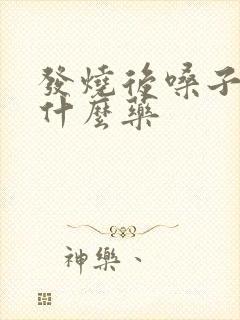 發燒後嗓子
什麼藥
神樂、